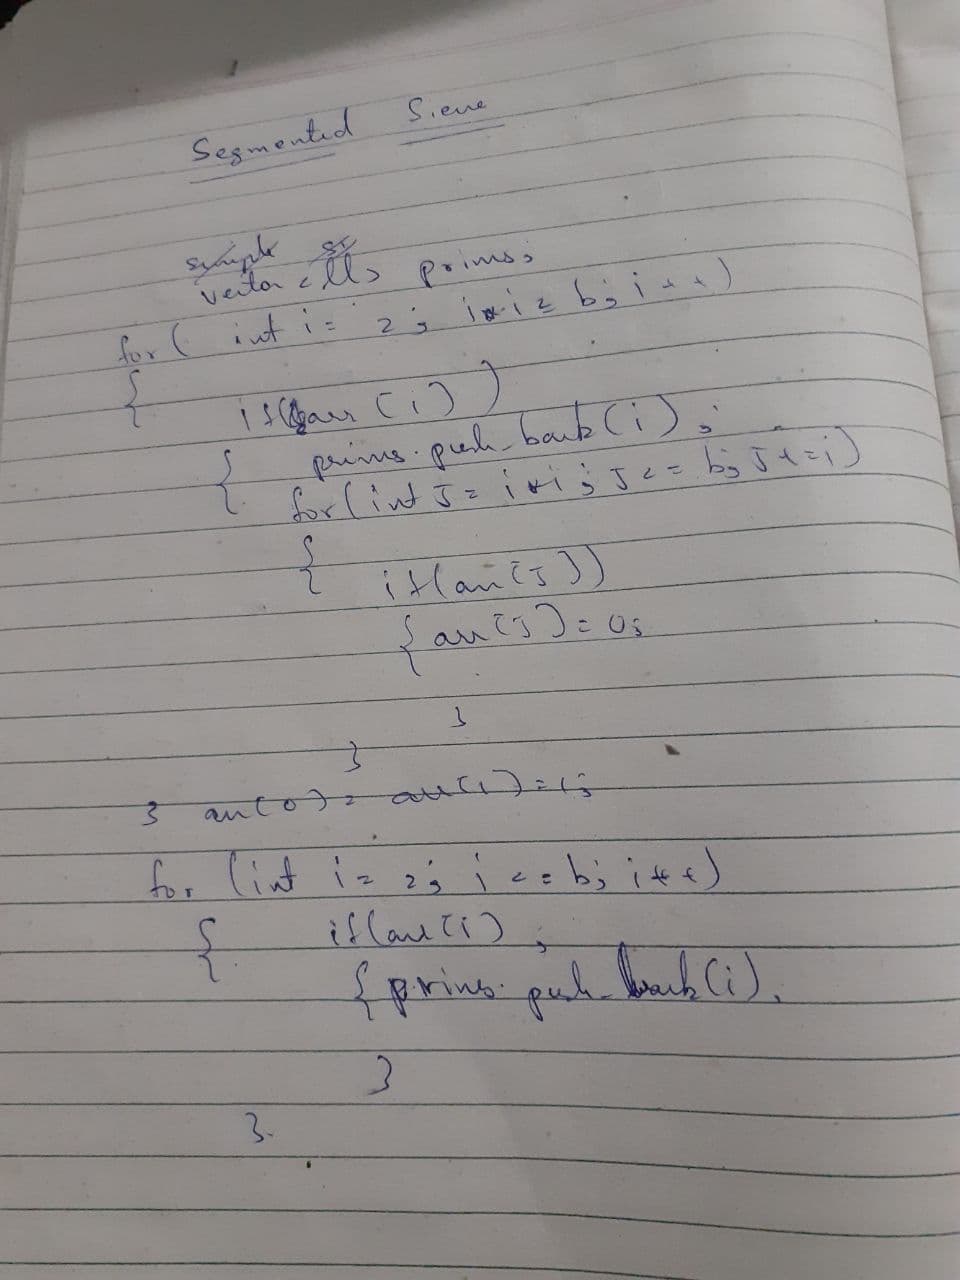 Segmented Sieve
vector <ll> primes;
for ( int i = 2 ; i*i = b; i++)
{ if (arr [i])
{ primes.push_back(i);
for (int J = i*i ; J <= b; J+=i)
{ if (arr[J])
{ arr[J] = 0;
}
}
} arr[0] = arr[1] = 1;
for (int i = 2; i <= b; i++)
{ if (arr[i]) ;
{ primes.push_back(i).
}
}.